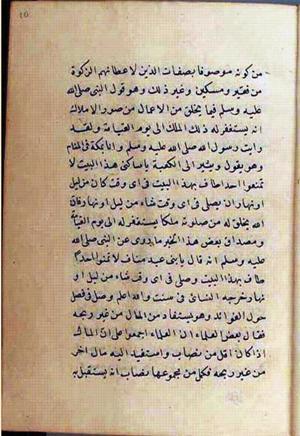 من كونه موصوفا بصفات الذين لاعطائهم الزكوة
من فقير ومسكين وغير ذلك وهو قول النبى صلى الله
عليه وسلم فيما يخلق من الاعمال من صور الاملاك
انه يستغفر له ذلك الملك الى يوم القيامة ولقد
رايت رسول الله صلى الله عليه وسلم وانا بمكة فى المنام
وهو يقول ويشير الى الكعبة يا ساكنى هذا البيت لا
تمنعوا احدا طاف بهذا البيت فى اى وقت كان من ليل
او نهار ان يصلى فى اى وقت شاء من ليل او نهار فان
الله يخلق له من صلوته ملكا يستغفر له الى يوم القيامة
ومصداق بعض هذا الخبر ما روى عن النبى صلى الله
عليه وسلم انه قال يا بنى عبد مناف لا تمنعوا احدا
طاف بهذا البيت وصلى فى اى وقت شاء من ليل او
نهار خرجه النسائى فى سننه والله اعلم وصل فى فصل
حول الفوائد وهو يستفاد من المال من غير ربحه
فقال بعض العلماء ان العلماء اجمعوا على ان المال
اذا كان اقل من نصاب واستفيد اليه مال اخر
من غير ربحه فكمل من مجموعها نصاب انه يستقبل به